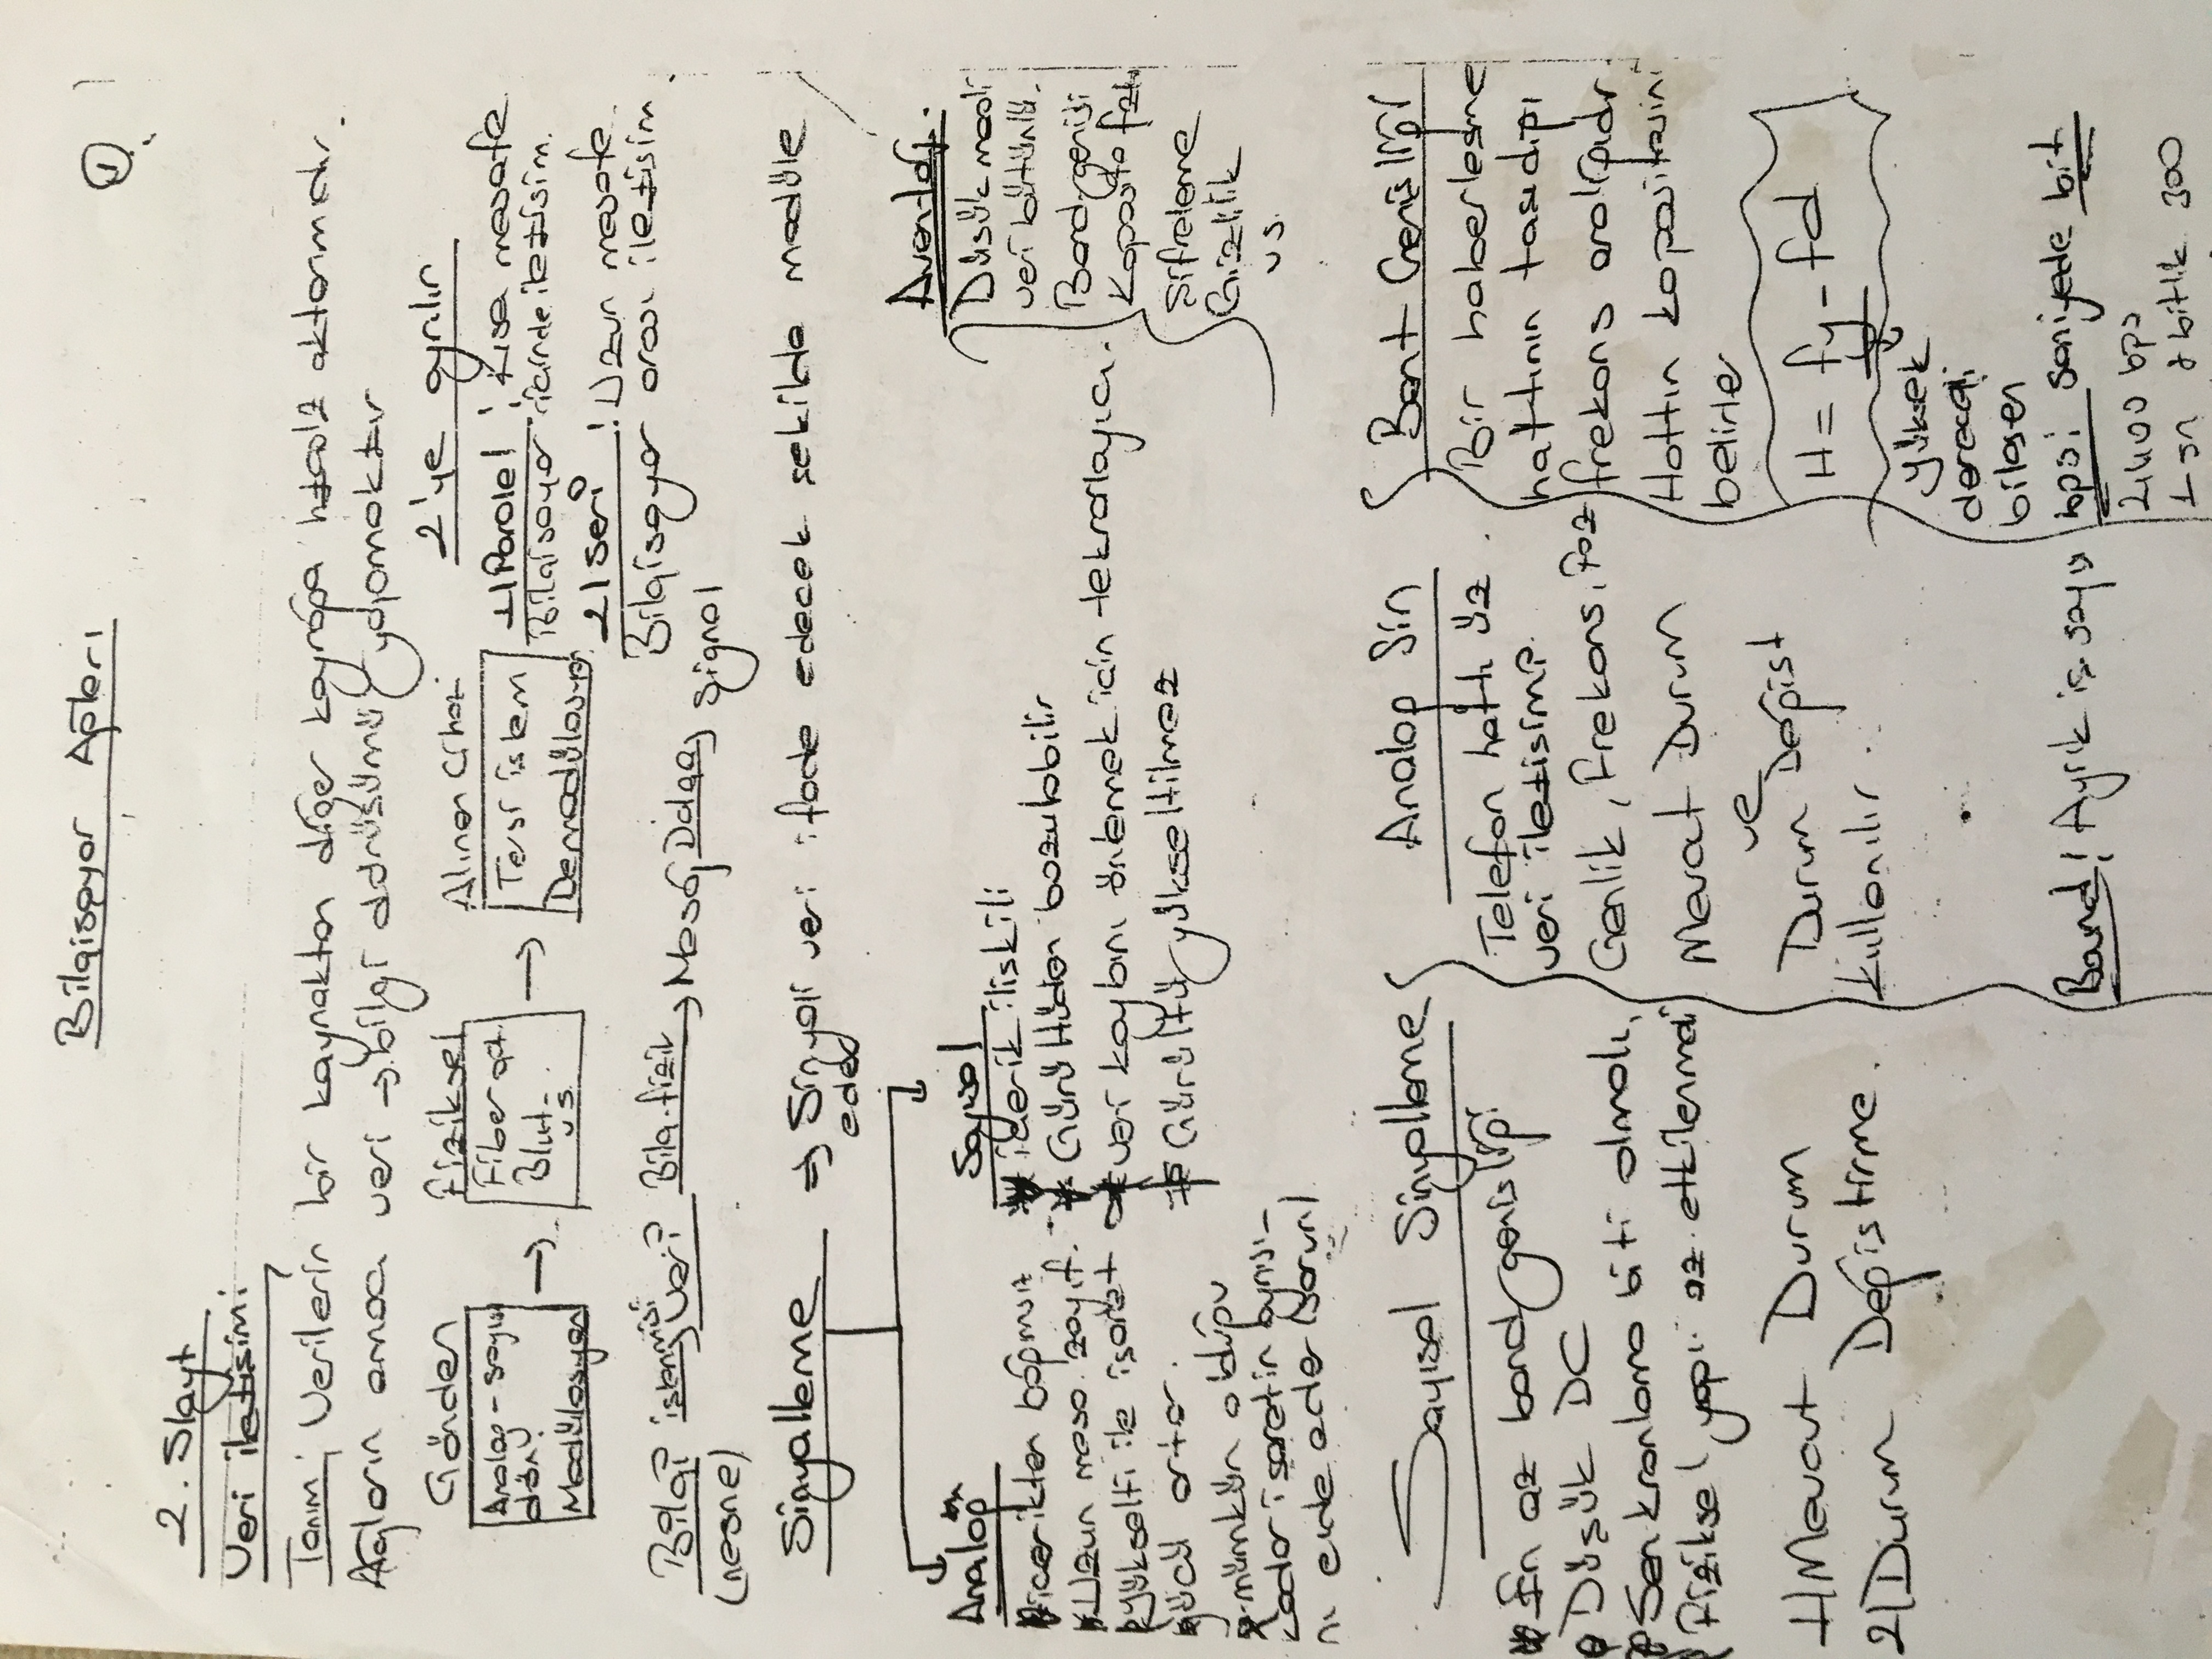 Bilgisayar Ağları
1
2. Slayt
Veri iletişimi
Tanım; Verilerin bir kaynaktan diğer kaynağa aktarımıdır.
Ağların amacı veri → bilgi dönüşümü yapmaktır
Gönderi
Analog - sayısal
dön.
Modülasyon
→
Fiziksel
Fiber opt.
Blut-
vs.
→
Alınan Cihaz
Tersi işlem
Demodülasyon
2'ye ayrılır
1) Paralel : Kısa mesafe
Bilgisayar içinde iletişim.
2) Seri : Uzun mesafe
Bilgisayar arası iletişim
Bilgi işlenmişi → Veri Bilg. fizik → Mesaj Dalga → Signal
(nesne)
Sinyalleme ⇒ Sinyali veri ifade edecek şekilde modüle
eder
Analog
içerikten bağımsız
Uzun mesa. zayıf.
yükselti ile işaret
gücü artar.
mümkün olduğu
kadar işaretin aynısı-
nı elde eder (sorun)
Sayısal
içerik ilişkili
Gürültüden bozulabilir
veri kaybını önlemek için tekrarlayıcı.
Gürültü yükseltilmez
Avantaj.
Düşük mali
veri bütünlü.
Band genişli
Kapasite fzl.
Şifreleme
Gizlilik
vs.
Sayısal Sinyalleme
En az band genişliği
Düşük DC
Senkronlama biti olmalı,
Fiziksel yapı. az etkilenmeli
1) Mevcut Durum
2) Durum Değiştirme.
Analog Sin
Telefon hattı üz.
veri iletişimi.
Genlik, Frekans, Faz
Mevcut Durum
ve
Durum Değişt
kullanılır.
Baud! Ayrık iş. sayıs
Bant Genişliği
Bir haberleşme
hattının taşıdığı
frekans aralığıdır.
Hattın kapasitesini
belirler
H = fy - fd
yüksek
dereceli
bileşen
bps: saniyede bit
2400 bps
1 sn 8 bitlik 300